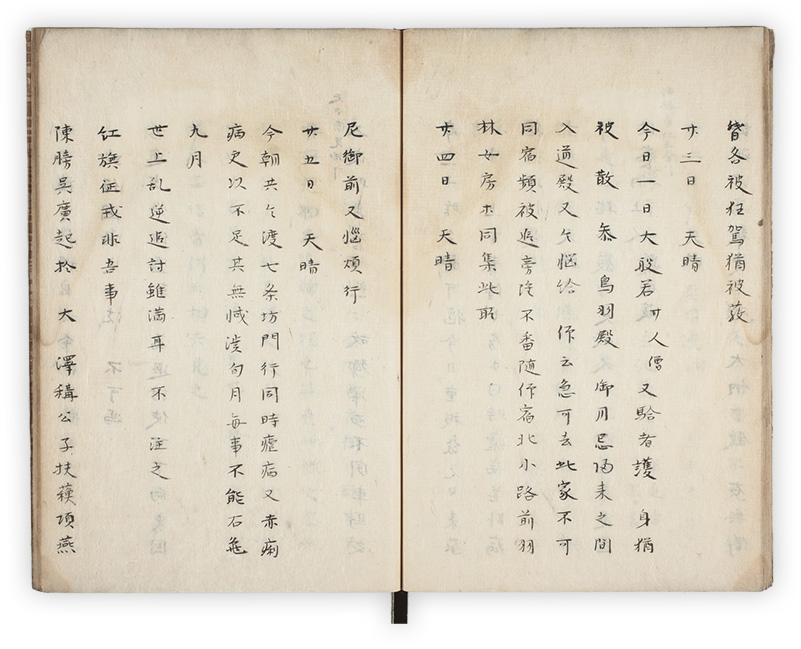 皆各被狂駕猶被
廿三日 天晴
今日一日大般若 廿人僧 又 者護 身猶
被 散 參鳥羽殿又御月忌 来之間
入道殿又令悩給 作云急可去此家不可
同宿頻被 旁 不番随作宿北小路前羽
林女房 同集此所
廿四日 天晴
尼御前又悩煩行
廿五日 天晴
今朝共令渡七条坊門行同時瘧病又赤痢
病更以不足其無 渋旬月毎事不能右筆
九月
世上乱逆追討雖満耳 不 注之
紅旗征戎非吾事
陳勝呉廣起於大澤稱公子扶蘇項燕